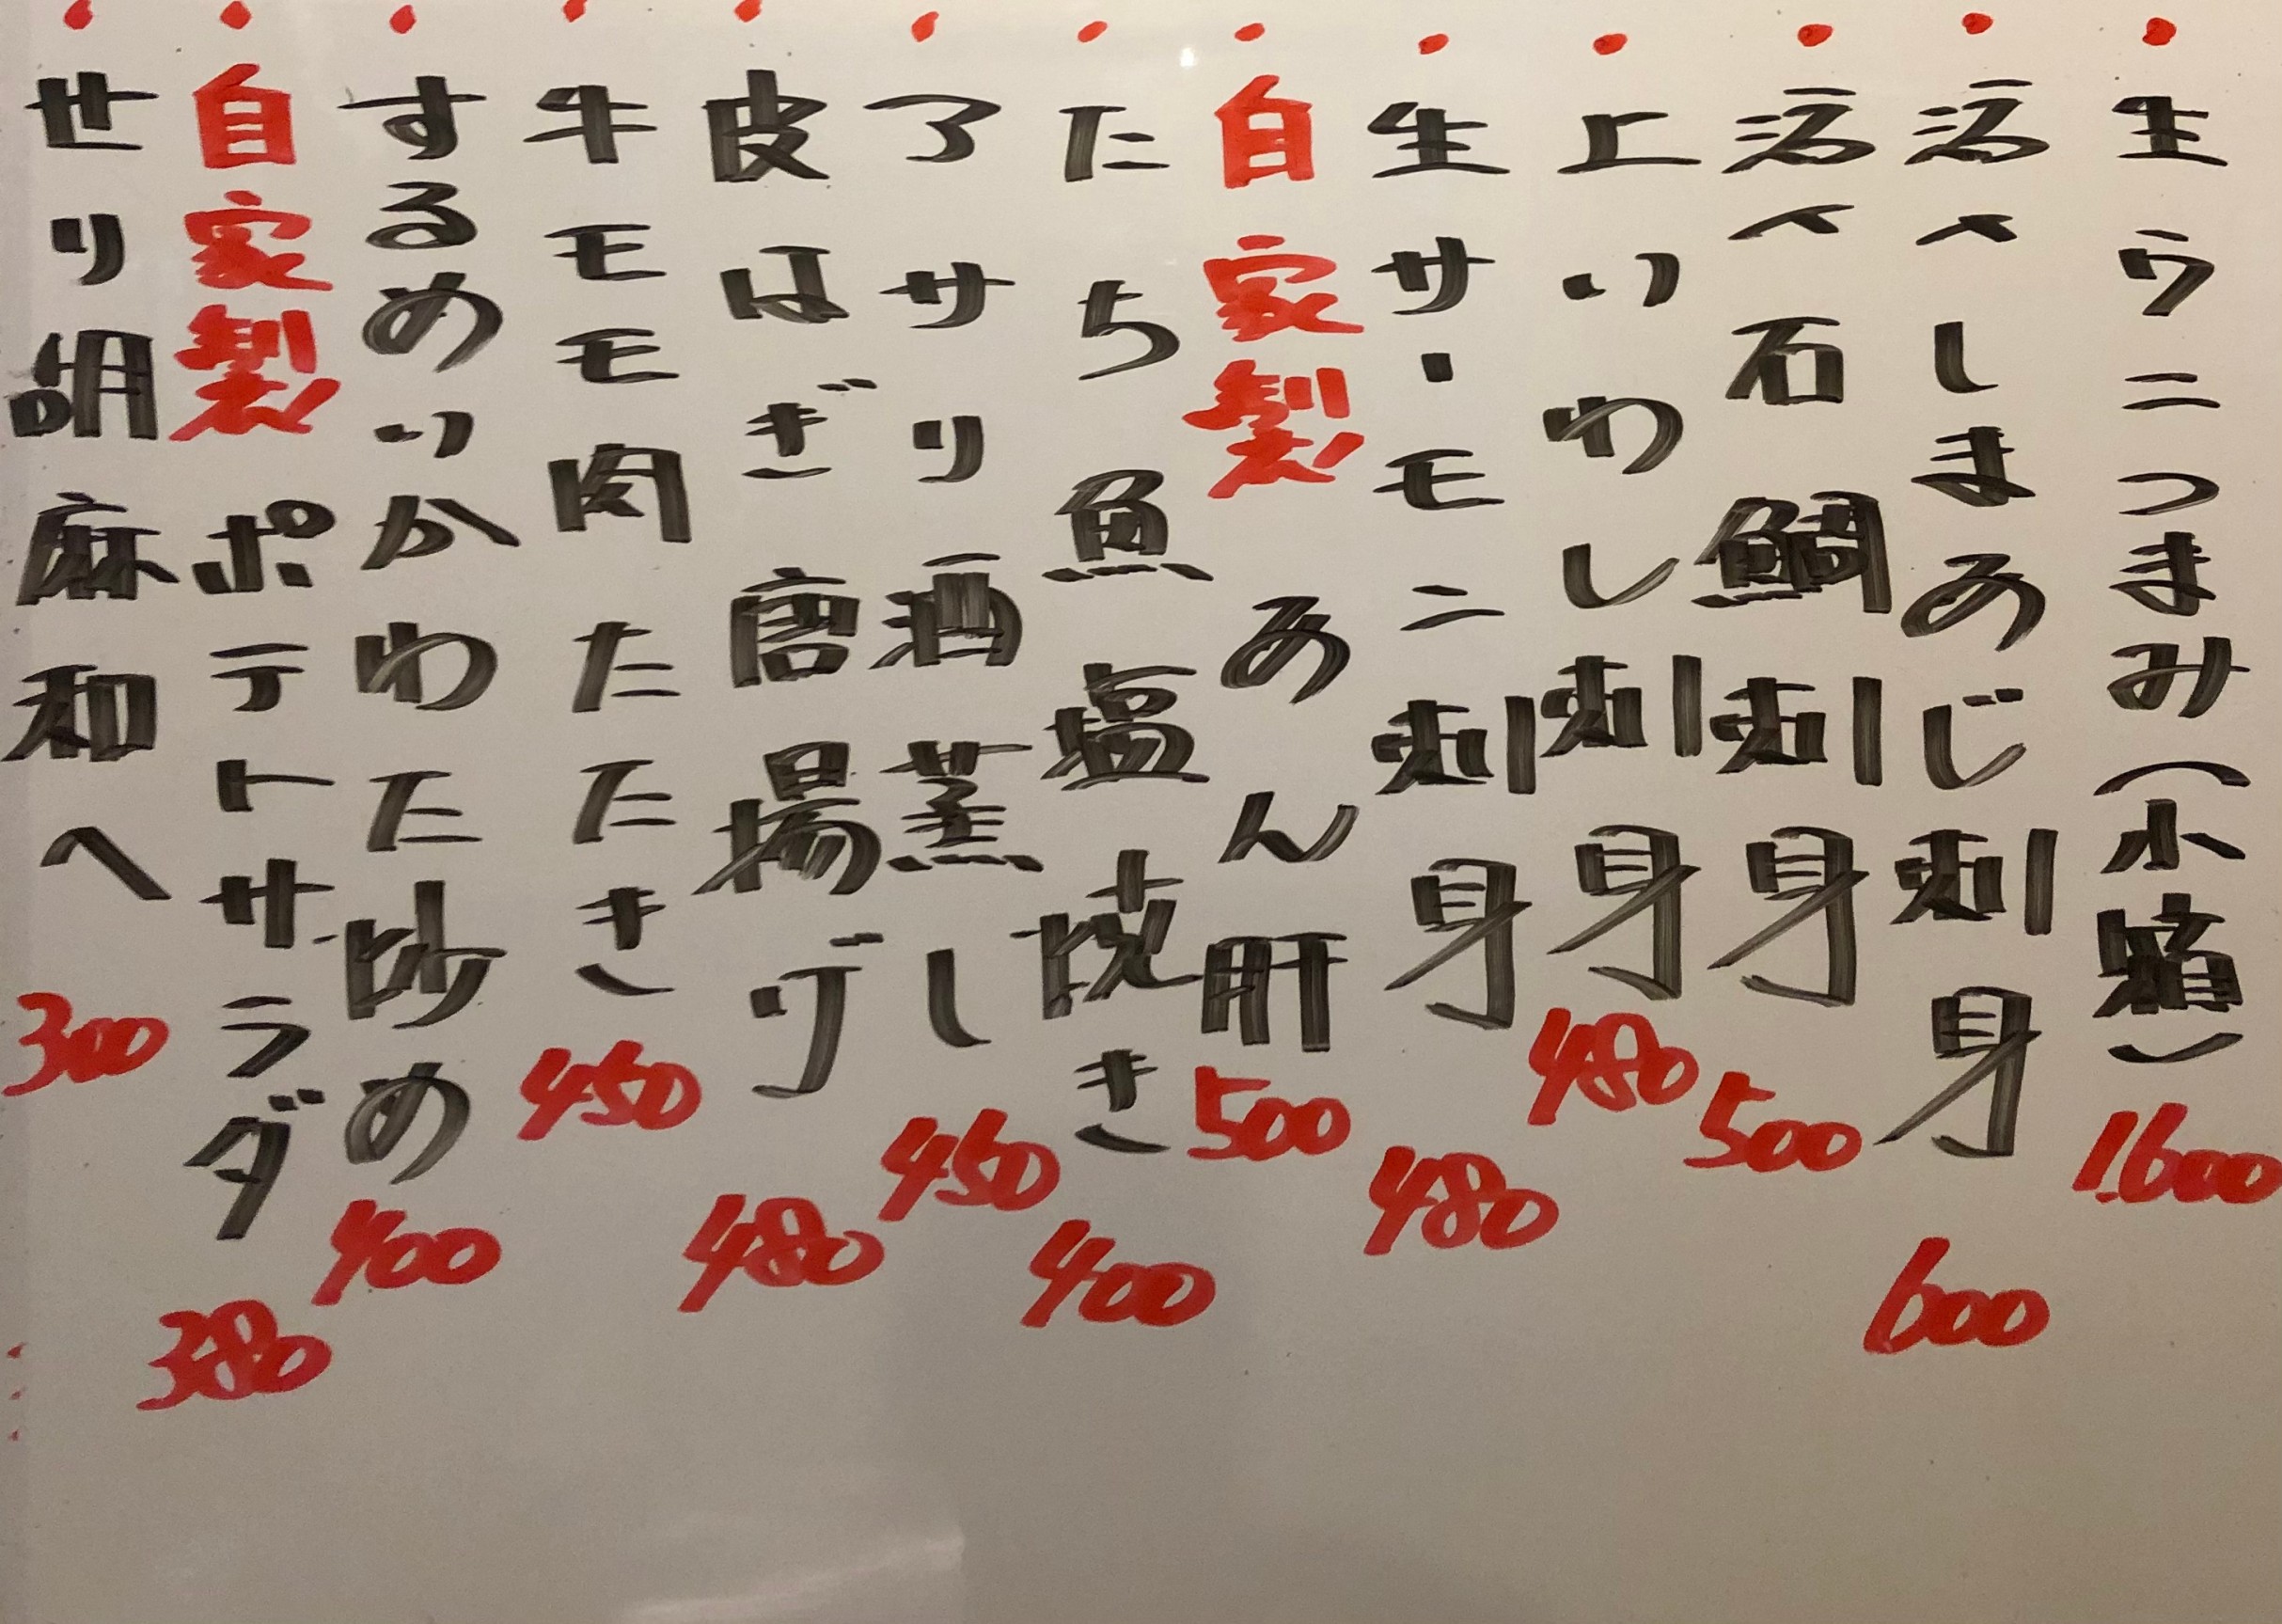 ・生ウニつまみ(小箱) 1,600
・活〆しまあじ刺身 600
・活〆石鯛刺身 500
・上いわし刺身 480
・生サーモン刺身 480
・自家製あん肝 500
・たち魚塩焼き 400
・アサリ酒蒸し 450
・皮はぎ唐揚げ 480
・牛モモ肉たたき 450
・するめいかわた炒め 400
・自家製ポテトサラダ 380
・せり胡麻和へ 300